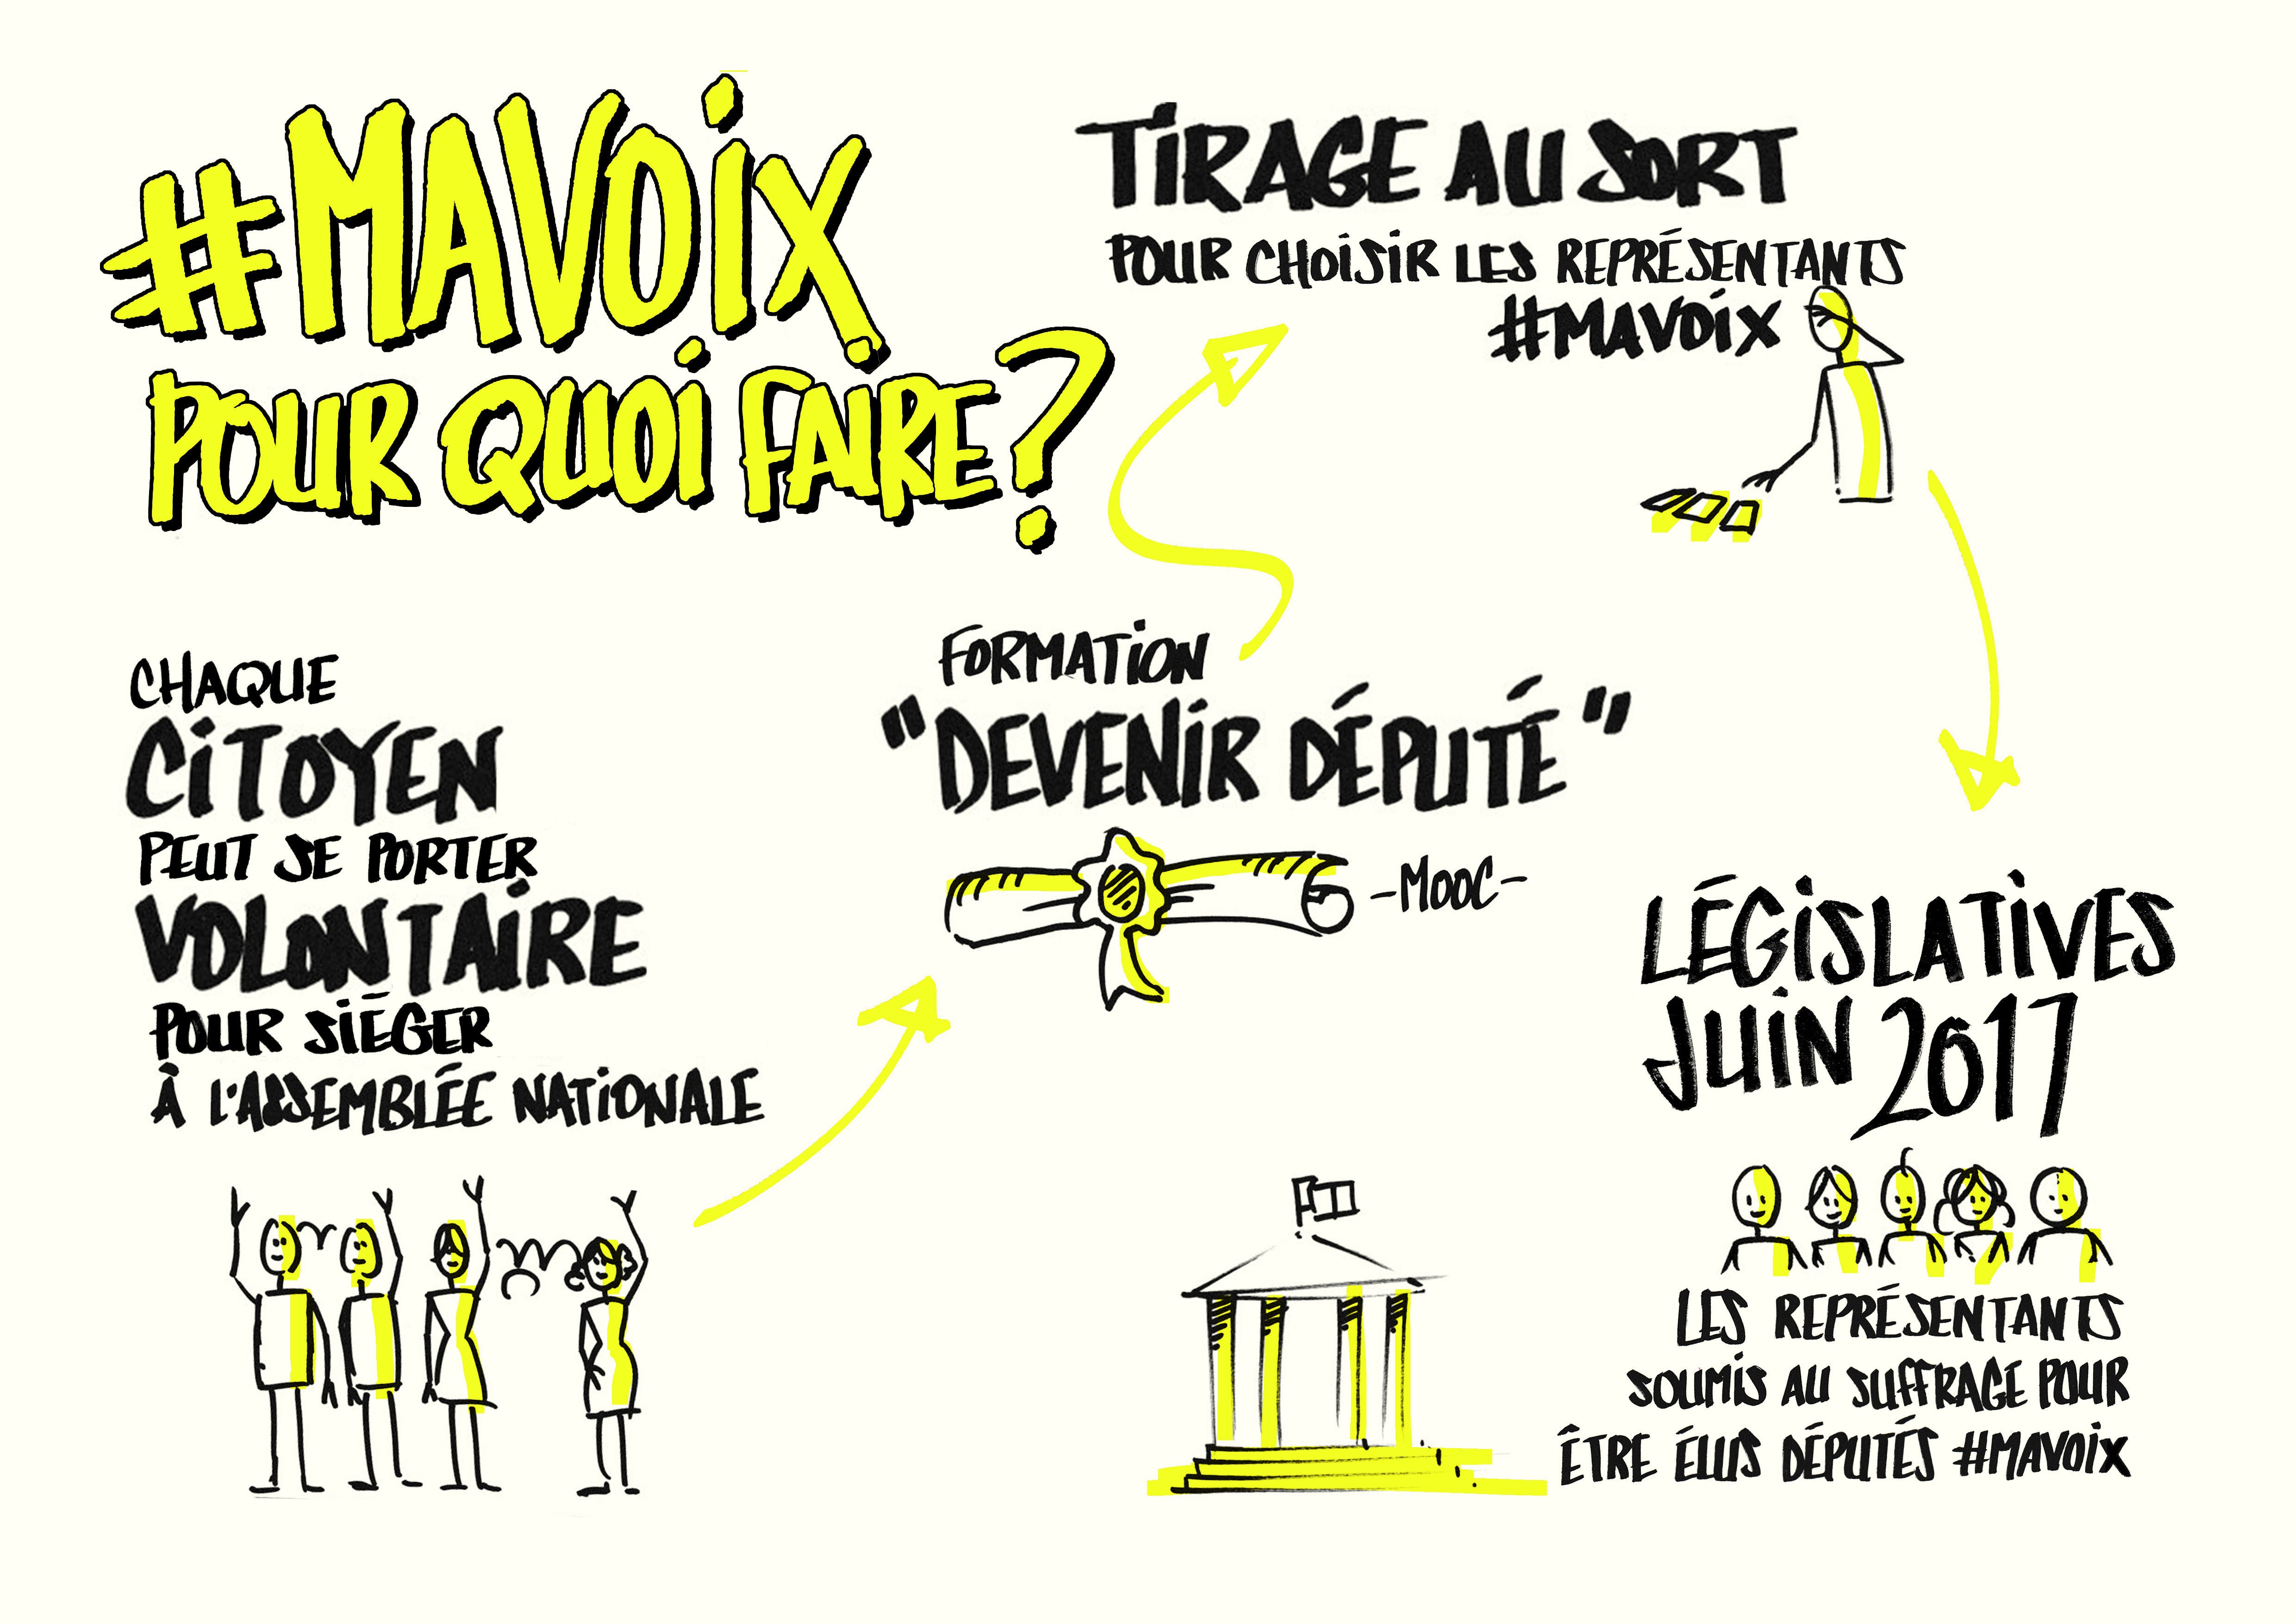 #MAVOIX
POUR QUOI FAIRE ?
CHAQUE
CITOYEN
PEUT SE PORTER
VOLONTAIRE
POUR SIÉGER
À L'ASSEMBLÉE NATIONALE
FORMATION
"DEVENIR DÉPUTÉ"
-MOOC-
TIRAGE AU SORT
POUR CHOISIR LES REPRÉSENTANTS
#MAVOIX
LÉGISLATIVES
JUIN 2017
LES REPRÉSENTANTS
SOUMIS AU SUFFRAGE POUR
ÊTRE ÉLUS DÉPUTÉS #MAVOIX